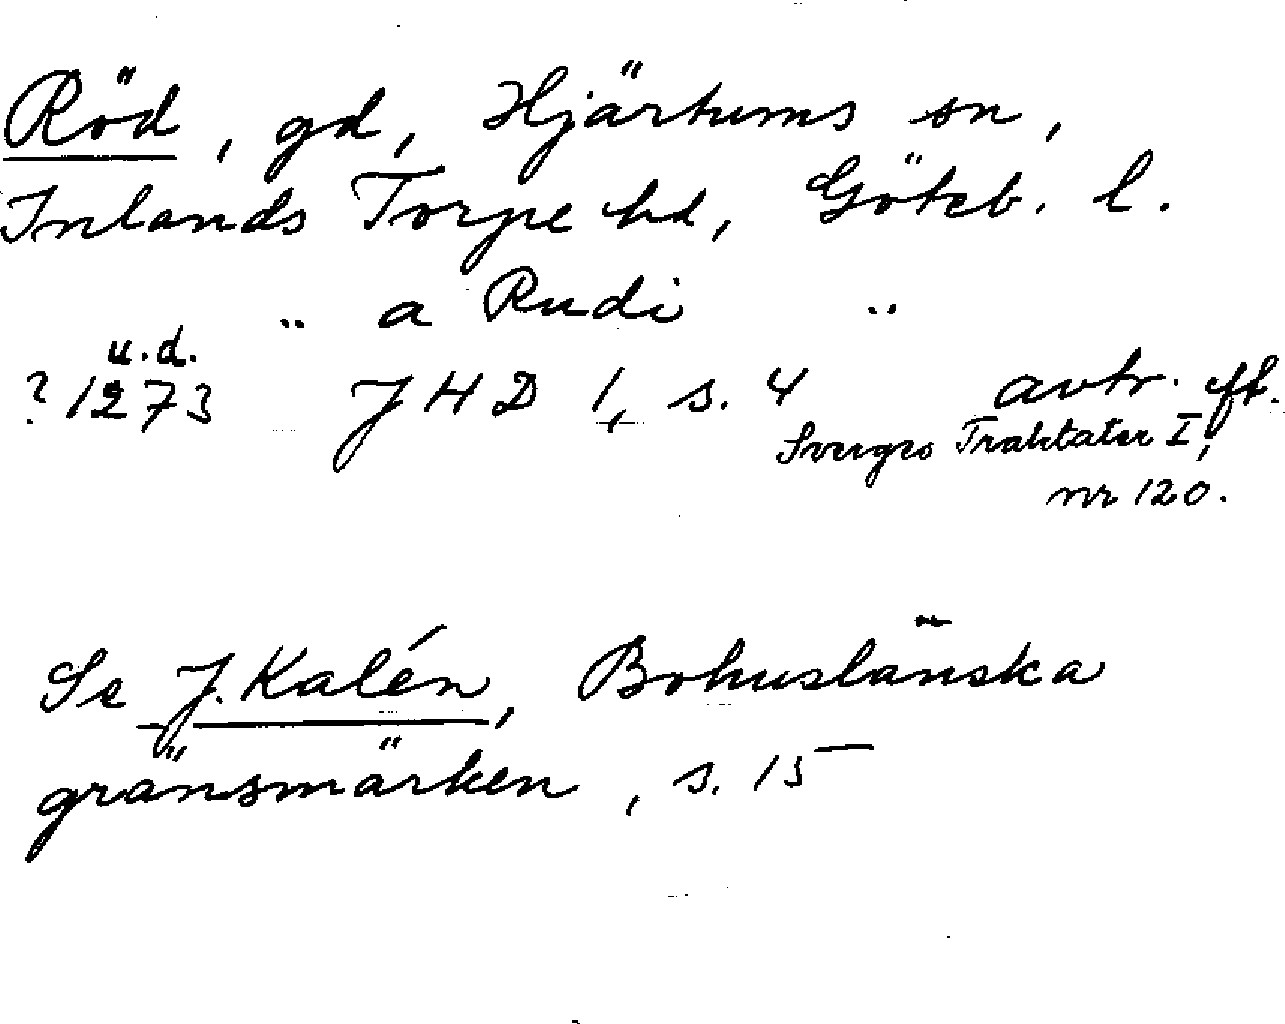 Röd, gd, Hjärtums sn,
Inlands Torpe hd, Göteb. l.
" a Rudi "
u.d.
? 1273 JHD 1, s. 4 avtr. eft.
Sverges Traktater I,
nr 120.
Se J. Kalén, Bohuslänska
gränsmärken, s. 15